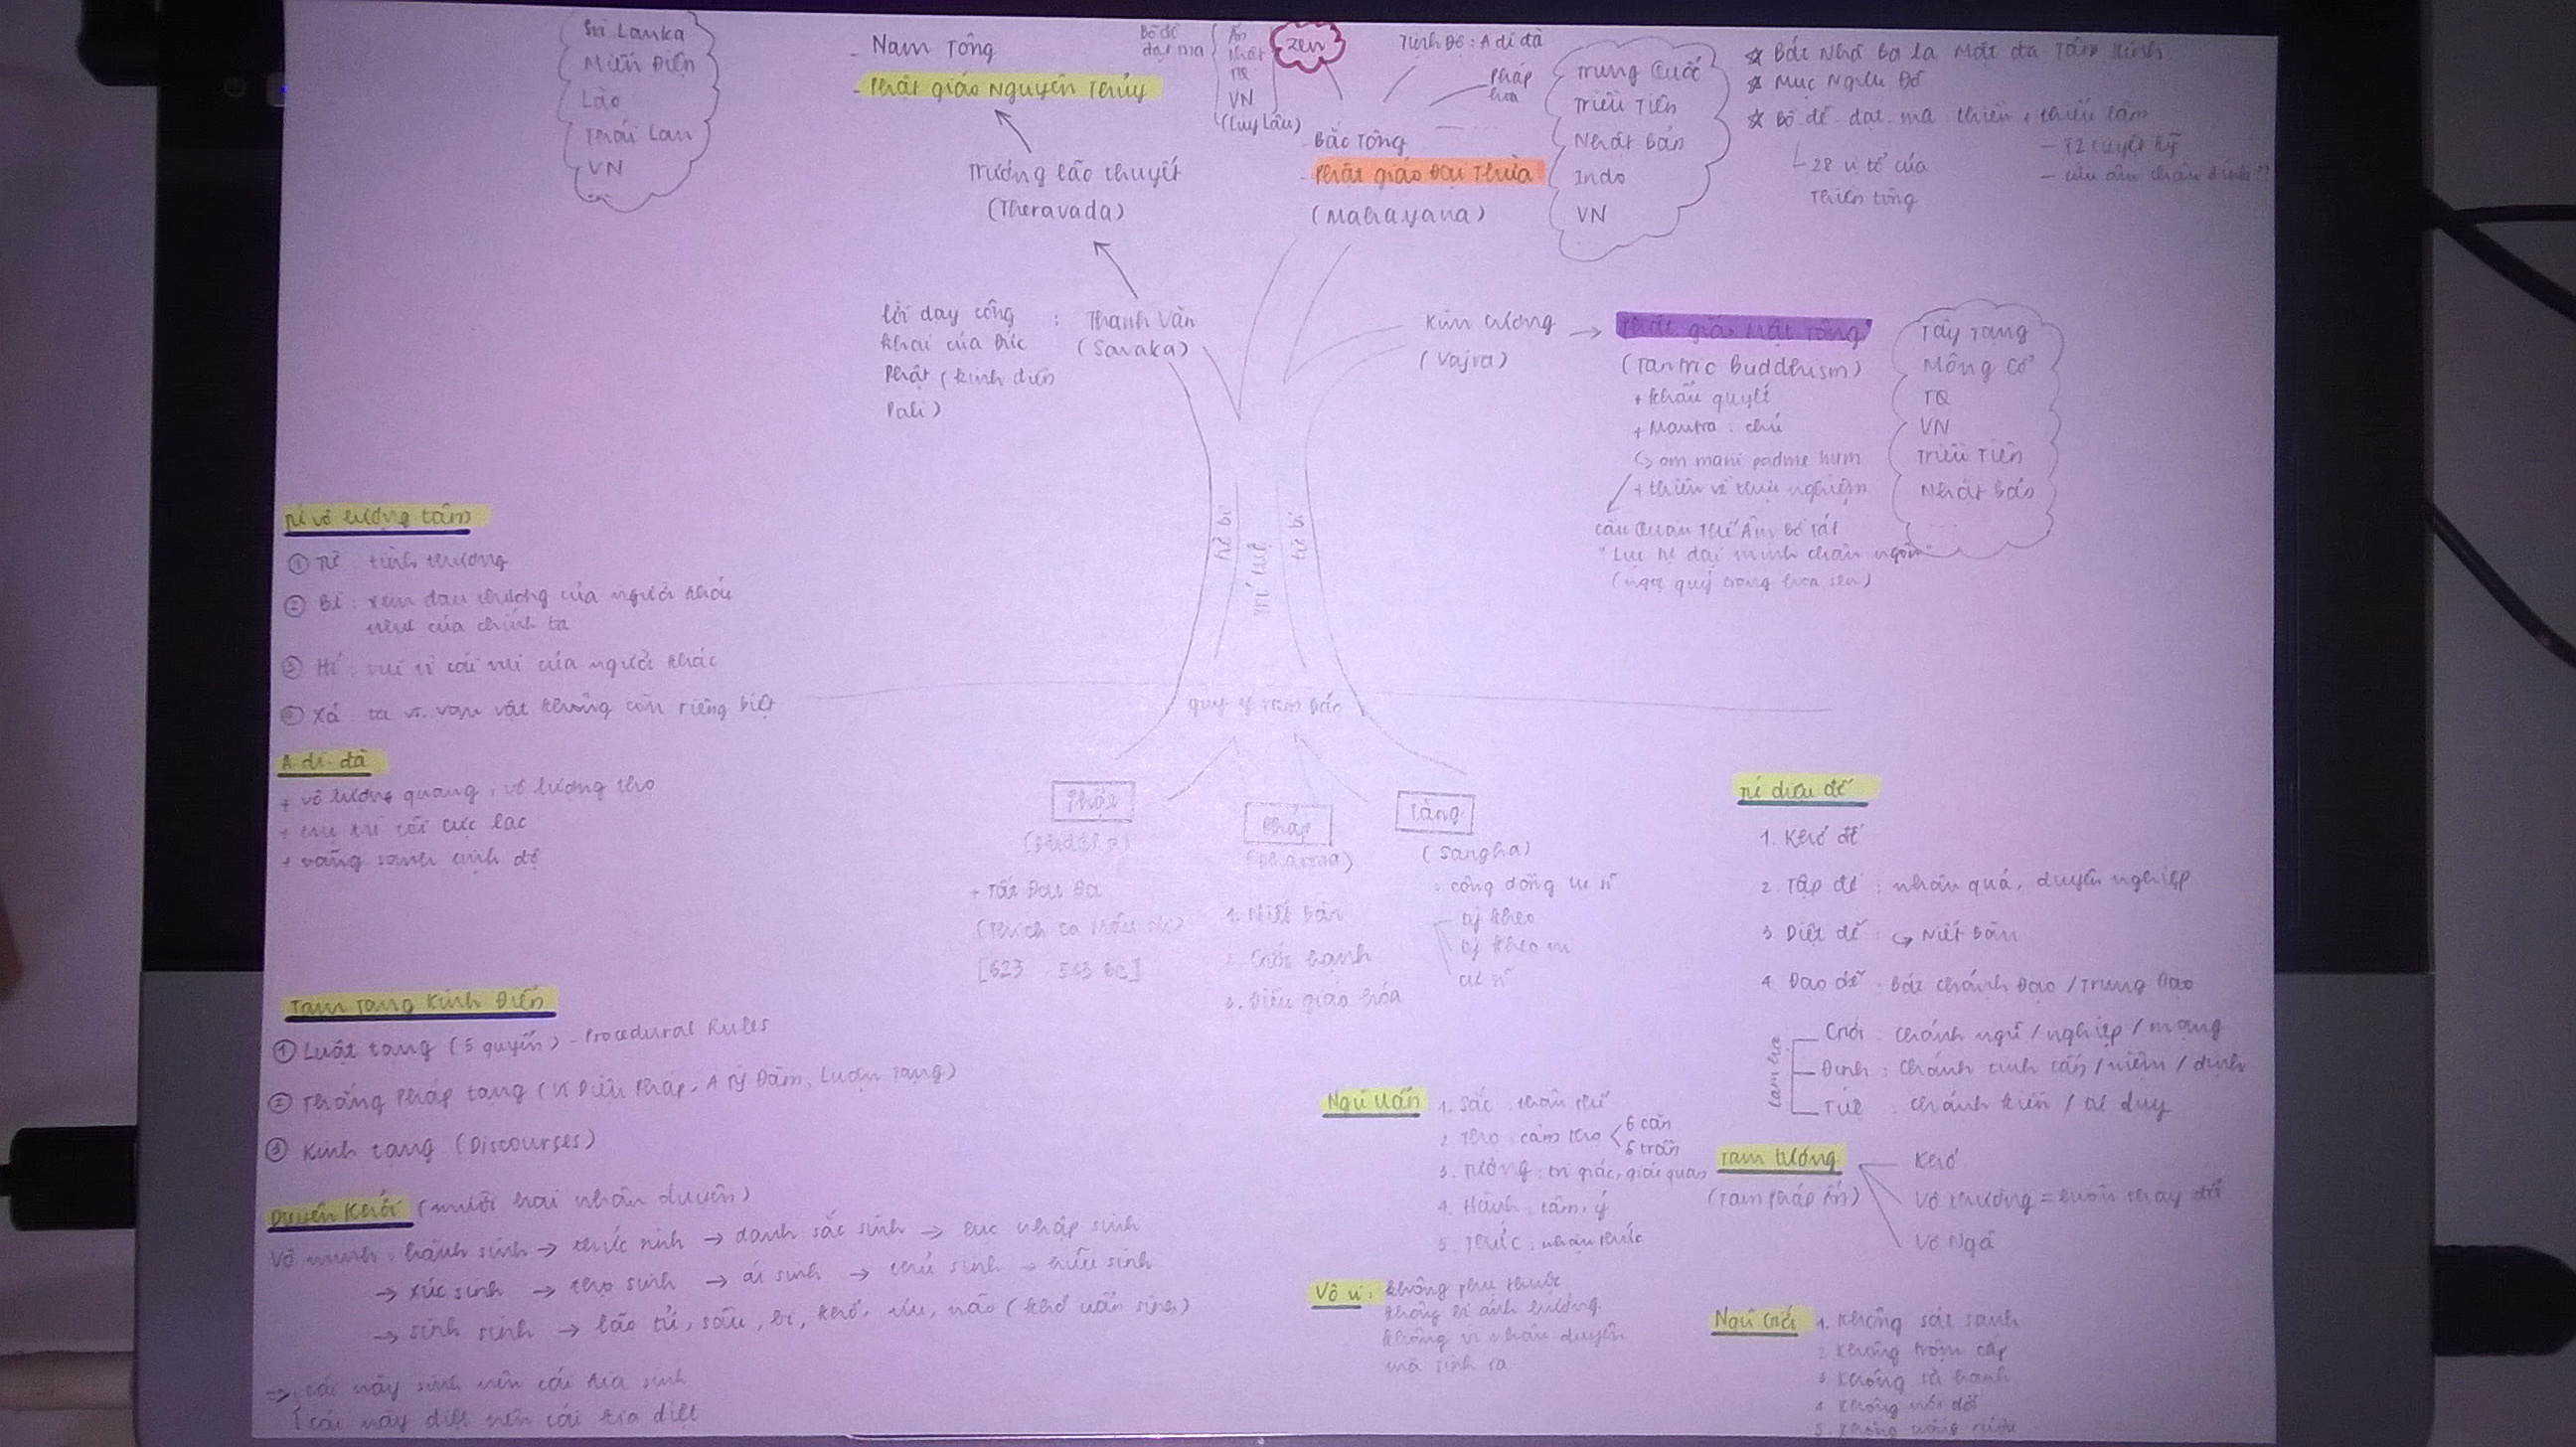 Sri Lanka
Miến Điện
Lào
Thái Lan
VN
...
- Nam Tông
- Phật giáo Nguyên Thủy
Trưởng lão thuyết
(Theravada)
Bồ đề
đạt ma
Ấn
Nhật
TQ
VN
(Luy Lâu)
Zen
Tịnh Độ : A di đà
Pháp
hoa
- Bắc Tông
- Phật giáo Đại Thừa
(Mahayana)
Trung Quốc
Triều Tiên
Nhật Bản
Indo
VN
...
☆ Bát Nhã Ba la Mật đa Tâm Kinh
☆ Mục Ngưu Đồ
☆ Bồ đề đạt ma thiền + thiếu lâm
28 vị tổ của
Thiền tông
- 72 tuyệt kỹ
- cửu âm chân kinh
lời dạy công
khai của Đức
Phật (kinh điển
Pali)
: Thanh Văn
(Savaka)
Kim cương
(Vajra)
→ Phật giáo Mật Tông
(Tantric Buddhism)
+ khẩu quyết
+ Mantra : chú
↳ om mani padme hum
+ thiên về thực nghiệm
câu Quan Thế Âm Bồ Tát
"Lục tự đại minh chân ngôn"
(ngọc quý trong hoa sen)
Tây Tạng
Mông Cổ
TQ
VN
Triều Tiên
Nhật Bản
...
Trí tuệ
từ bi
quy y tam bảo
Tứ vô lượng tâm
① Từ : tình thương
② Bi : xem đau thương của người khác
như của chính ta
③ Hỉ : vui vì cái vui của người khác
④ Xả : ta vs. vạn vật không còn riêng biệt
A-di-đà
+ vô lượng quang, vô lượng thọ
+ trụ trì cõi cực lạc
+ vãng sanh tịnh độ
Phật
(Buddha)
+ Tất Đạt Đa
(Thích Ca Mâu Ni)
[623 - 543 BC]
Pháp
(Dharma)
1. Niết bàn
2. Giới hạnh
3. Điều giáo hóa
Tăng
(Sangha)
: cộng đồng tu sĩ
tỳ kheo
tỳ kheo ni
cư sĩ
Tứ diệu đế
1. Khổ đế
2. Tập đế : nhân quả, duyên nghiệp
3. Diệt đế : ↪ Niết Bàn
4. Đạo đế : Bát Chánh Đạo / Trung Đạo
tam học
Giới : chánh ngữ / nghiệp / mạng
Định : chánh tinh tấn / niệm / định
Tuệ : chánh kiến / tư duy
Tam Tạng Kinh Điển
① Luật tạng (5 quyển) - Procedural Rules
② Thắng Pháp tạng (Vi Diệu Pháp, A Tỳ Đàm, Luận Tạng)
③ Kinh tạng (Discourses)
Duyên Khởi (mười hai nhân duyên)
Vô minh : hành sinh → thức sinh → danh sắc sinh → lục nhập sinh
→ xúc sinh → thọ sinh → ái sinh → thủ sinh → hữu sinh
→ sinh sinh → lão tử, sầu, bi, khổ, ưu, não (khổ uẩn sinh)
⇒ cái này sinh nên cái kia sinh
cái này diệt nên cái kia diệt
Ngũ Uẩn
1. Sắc : thân thể
2. Thọ : cảm thọ
6 căn
6 trần
3. Tưởng : tri giác, giác quan
4. Hành : tâm, ý
5. Thức : nhận thức
Vô vi : không phụ thuộc
không bị ảnh hưởng
không vì nhân duyên
mà sinh ra
Tam tướng
(Tam pháp ấn)
Khổ
Vô thường = luôn thay đổi
Vô Ngã
Ngũ Giới
1. Không sát sanh
2. Không trộm cắp
3. Không tà hạnh
4. Không nói dối
5. Không uống rượu